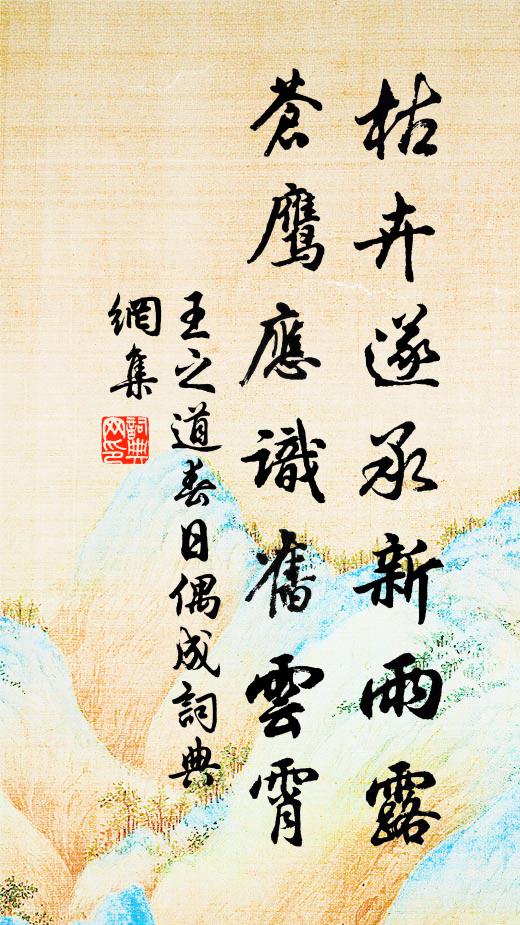 枯卉遂承新雨露
蒼鷹應識舊雲霄
王之道春日偶成詞典
網集
詞典
网印